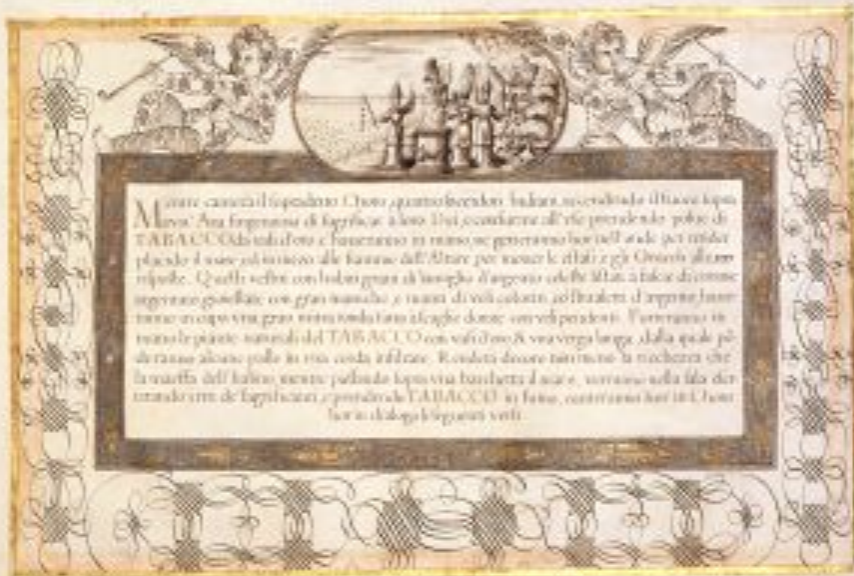 Mentre canterà il sopradetto Choro, quattro sacerdoti Indiani, accendendo il fuoco sopra
Ara fingeranno di sagrificar à loro Dei, e conforme all'uso prendendo polue di
TABACCO da vasi d'oro c'haueranno in mano, ne getteranno hor nell'onde per render
placido il mare, ed hor in mezo alle fiamme dell'Altare per muouer le essi e gli Oracoli alle
risposte. Quelli vestiti con habiti gran di d'argento à falde di
argentate gioiellate con gran maniche, e manti di veli colorati, d'argento, haue
ranno in capo vna gran mitra tonda con veli pendenti. Porteranno in
mano le piante naturali del TABACCO con vasi d'oro, & vna verga lunga, dalla quale pē
deranno alcune palle in vna corda infilzate. Renderà decoro non meno la ricchezza che
la maestà dell'habito, mentre passando sopra vna barchetta il mare, verranno nella sala
de' sagrificanti, e prendendo TABACCO in fumo, canteranno hor in Choro
hor in dialogo i seguenti versi.